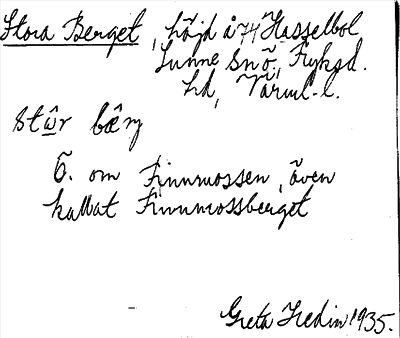 Stora Berget, höjd å 44 Hasselbol
Sunne Snö., Fryksd.
hd, Värml. l.
stŵr bœ̂rj
Ö. om Finnmossen, även
kallat Finnmossberget
Greta Hedin 1935.